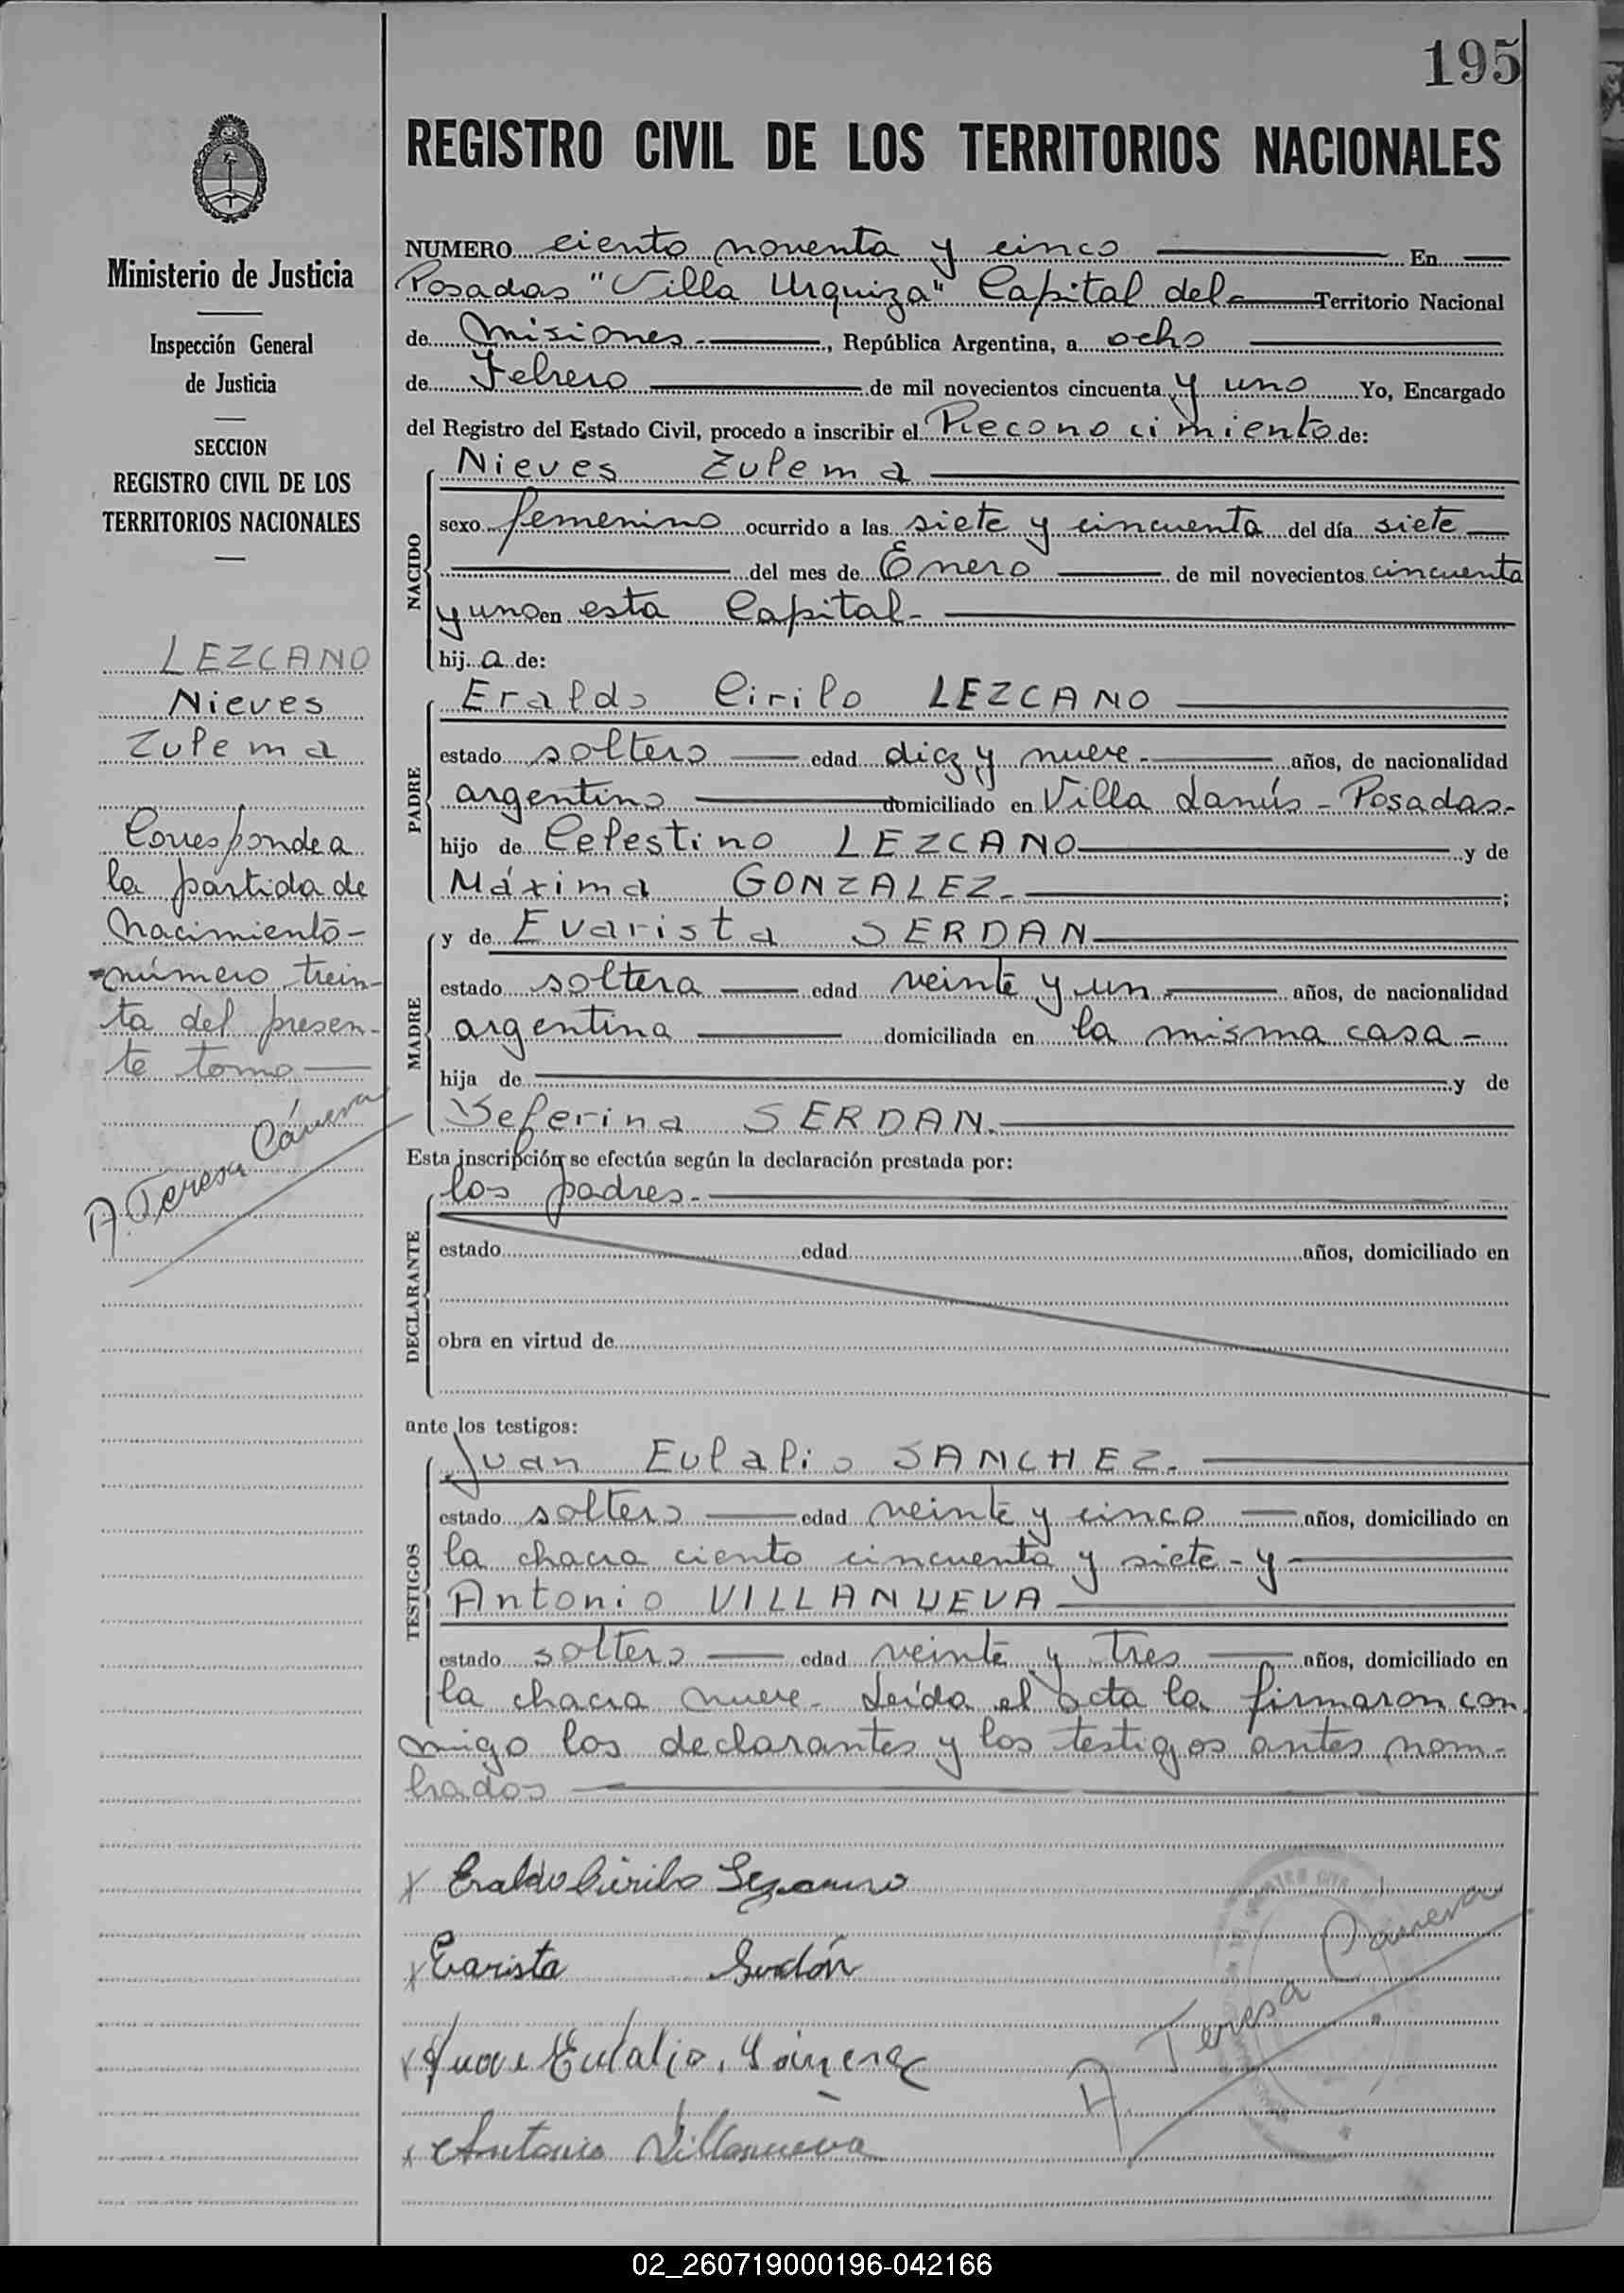 195
REGISTRO CIVIL DE LOS TERRITORIOS NACIONALES
Ministerio de Justicia
Inspección General
de Justicia
SECCION
REGISTRO CIVIL DE LOS
TERRITORIOS NACIONALES
LEZCANO
Nieves
Zulema
Corresponde a
la partida de
Nacimiento-
número trein-
ta del presen-
te tomo
A. Teresa Cáneva
NUMERO ciento noventa y cinco En
Posadas "Villa Urquiza" Capital del Territorio Nacional
de Misiones-, República Argentina, a ocho
de Febrero de mil novecientos cincuenta y uno Yo, Encargado
del Registro del Estado Civil, procedo a inscribir el Reconocimiento de:
NACIDO
Nieves Zulema
sexo femenino ocurrido a las siete y cincuenta del día siete
del mes de Enero de mil novecientos cincuenta
y uno en esta Capital-
hija de:
PADRE
Eraldo Cirilo LEZCANO
estado soltero edad diez y nueve- años, de nacionalidad
argentino domiciliado en Villa Lanús - Posadas-
hijo de Celestino LEZCANO y de
Máxima GONZALEZ-;
MADRE
y de Evarista SERDAN
estado soltera edad veinte y un- años, de nacionalidad
argentina domiciliada en la misma casa-
hija de y de
Seferina SERDAN.
Esta inscripción se efectúa según la declaración prestada por:
DECLARANTE
los padres-
estado edad años, domiciliado en
obra en virtud de
ante los testigos:
TESTIGOS
Juan Eulalio SANCHEZ-
estado soltero edad veinte y cinco años, domiciliado en
la chacra ciento cincuenta y siete-y-
Antonio VILLANUEVA
estado soltero edad veinte y tres años, domiciliado en
la chacra nueve- Leída el acta la firmaron con
migo los declarantes y los testigos antes nom-
brados
x Eraldo Cirilo Lezcano
x Evarista Serdán
x Juan Eulalio Sánchez
x Antonio Villanueva
A. Teresa Cáneva
02_260719000196-042166